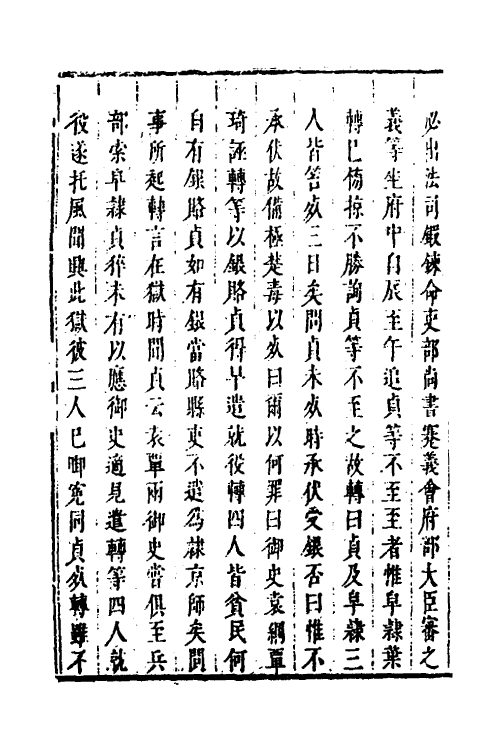 必出法司鍛鍊命吏部尚書蹇義會府部大臣審之
義等坐府中自辰至午追貞等不至至者惟皁隷葉
轉已備掠不勝詢貞等不至之故轉曰貞及皁隷三
人皆笞死三日矣問貞未死時承伏受銀否曰惟不
承伏故備極楚毒以死曰爾以何罪曰御史袁綱覃
琦誣轉等以銀賂貞得早遣就役轉四人皆貧民何
自有銀賂貞如有銀當賂縣吏不遣爲隷京師矣問
事所起轉言在獄時聞貞云袁單兩御史嘗俱至兵
部索皁隷貞猝未有以應御史適見遣轉等四人就
役遂托風聞興此獄彼三人已啣寃同貞死轉雖不